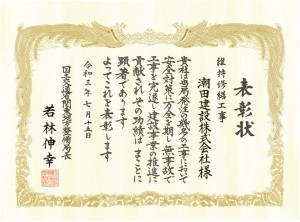 表彰状
維持修繕工事
潮田建設株式会社様
貴社は当局発注の幾多の工事において
安全対策に万全を期し無事故で
工事を完遂し建設事業の推進に
貢献されその功績はまことに
顕著であります
よってこれを表彰します
令和三年七月十五日
国土交通省関東地方整備局長
若林伸幸